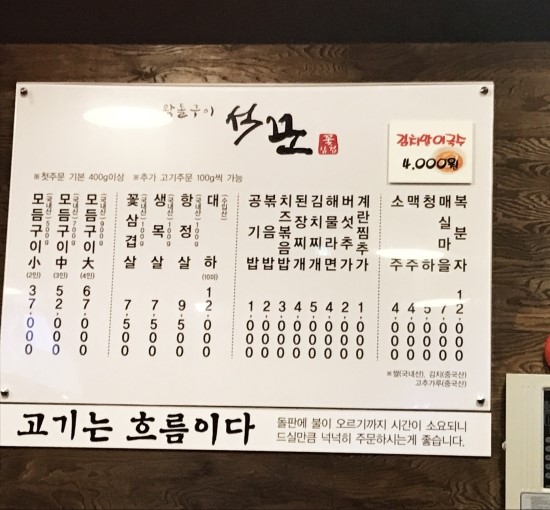 김치말이국수
4,000원
※첫주문 기본 400g이상 ※추가 고기주문 100g씩 가능
모듬구이小 (국내산) 500g (2인) 37,000
모듬구이中 (국내산) 700g (3인) 52,000
모듬구이大 (국내산) 900g (4인) 67,000
꽃삼겹살 (국내산) 100g 7,500
생목살 (국내산) 100g 7,500
항정살 (국내산) 100g 9,500
대하 (수입산) (10미) 12,000
공기밥 1,000
볶음밥 2,000
치즈볶음밥 3,000
된장찌개 4,000
김치찌개 5,000
해물라면 4,000
버섯추가 2,000
계란찜추가 1,000
소주 4,000
맥주 4,000
청하 5,000
매실마을 7,000
복분자 12,000
※쌀(국내산), 김치(중국산)
고추가루(중국산)
고기는 흐름이다
돌판에 불이 오르기까지 시간이 소요되니
드실만큼 넉넉히 주문하시는게 좋습니다.